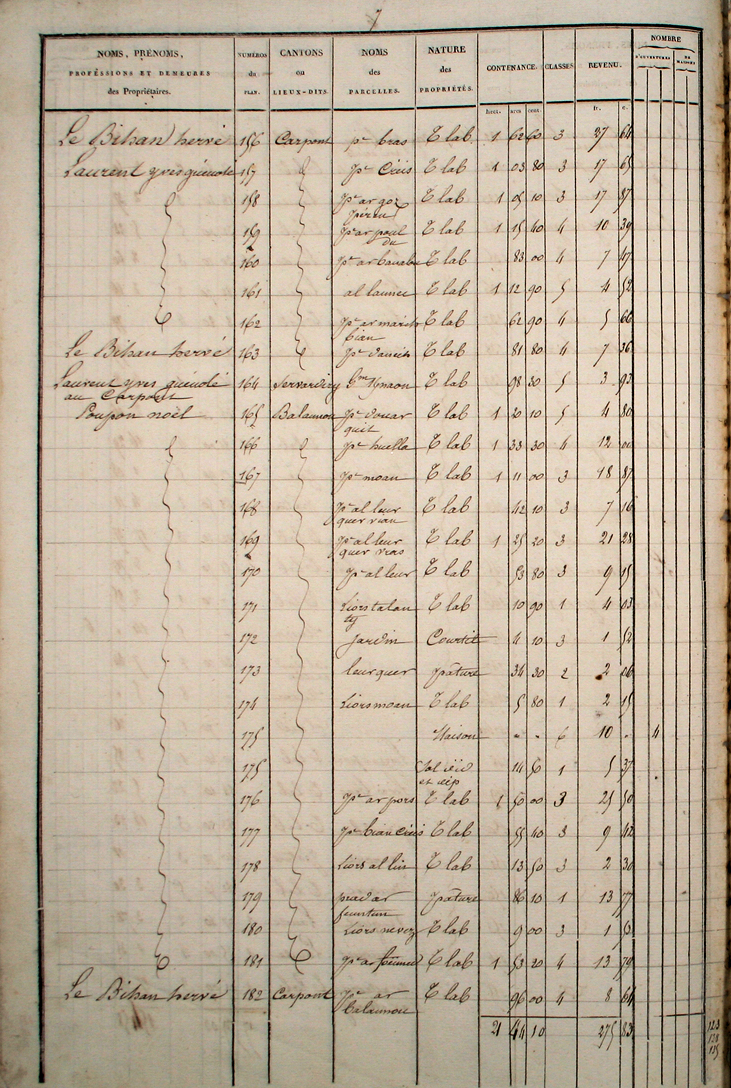 7
NOMS, PRÉNOMS, PROFESSIONS ET DEMEURES des Propriétaires. NUMÉROS du PLAN. CANTONS ou LIEUX-DITS. NOMS des PARCELLES. NATURE des PROPRIÉTÉS. CONTENANCE. CLASSES. REVENU. NOMBRE D'OUVERTURES DE MAISONS
hect. ares cent. fr. c.
Le Bihan hervé 156 Carpont pc bras T lab 1 62 60 3 27 64
Laurent yves guénolé 157 pc Creis T lab 1 03 80 3 17 65
158 pc ar goz T lab 1 05 10 3 17 87
159 pc ar poul du T lab 1 15 40 4 10 39
160 T lab 83 00 4 7 47
161 al launec T lab 1 12 90 5 4 52
162 bian T lab 62 90 4 5 66
Le Bihan hervé 163 T lab 81 80 4 7 36
Laurent yves guénolé 164 T lab 98 30 5 3 93
au Carpont
Poupon noël 165 Balaunou pc douar quit T lab 1 20 10 5 4 80
166 pc huella T lab 1 33 30 4 12 00
167 pc moan T lab 1 11 00 3 18 87
168 pc al leur quer vian T lab 42 10 3 7 16
169 pc al leur quer vras T lab 1 25 20 3 21 28
170 pc al leur T lab 53 80 3 9 15
171 Liors tal an ty T lab 10 90 1 4 03
172 jardin Courtil 4 10 3 1 52
173 leurquer pâture 34 30 2 2 06
174 Liors moan T lab 5 80 1 2 15
175 Maison " " 6 10 " 4
175 14 50 1 5 37
176 pc ar pors T lab 1 50 00 3 25 50
177 pc bian creis T lab 55 40 3 9 42
178 Liors al lin T lab 13 50 3 2 30
179 prad ar feuntun pâture 86 10 1 13 77
180 Liors nevez T lab 9 00 3 1 53
181 T lab 1 53 20 4 13 79
Le Bihan hervé 182 Carpont pc ar balaunou T lab 96 00 4 8 64
21 44 10 275 83